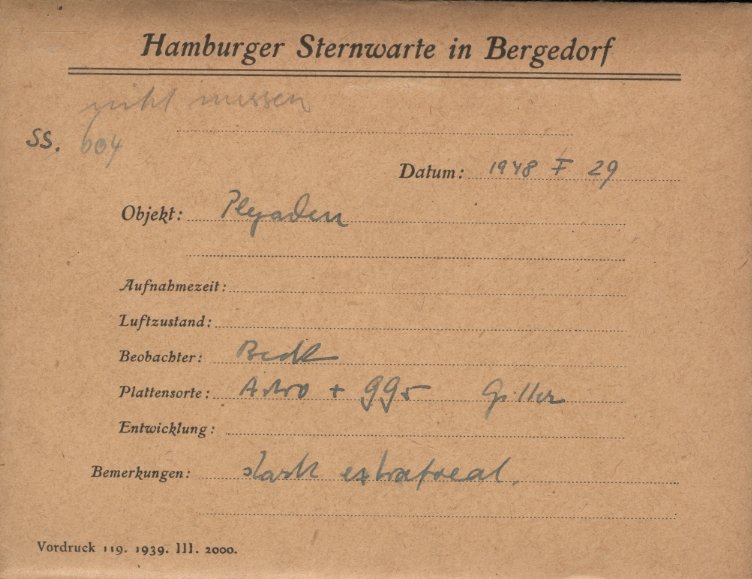 Hamburger Sternwarte in Bergedorf
nicht messen
SS. 604
Datum: 1948 I 29
Objekt: Plejaden
Aufnahmezeit:
Luftzustand:
Beobachter:
Plattensorte: Astro + GG5 Gitter
Entwicklung:
Bemerkungen: stark extrafocal
Vordruck 119. 1939. III. 2000.